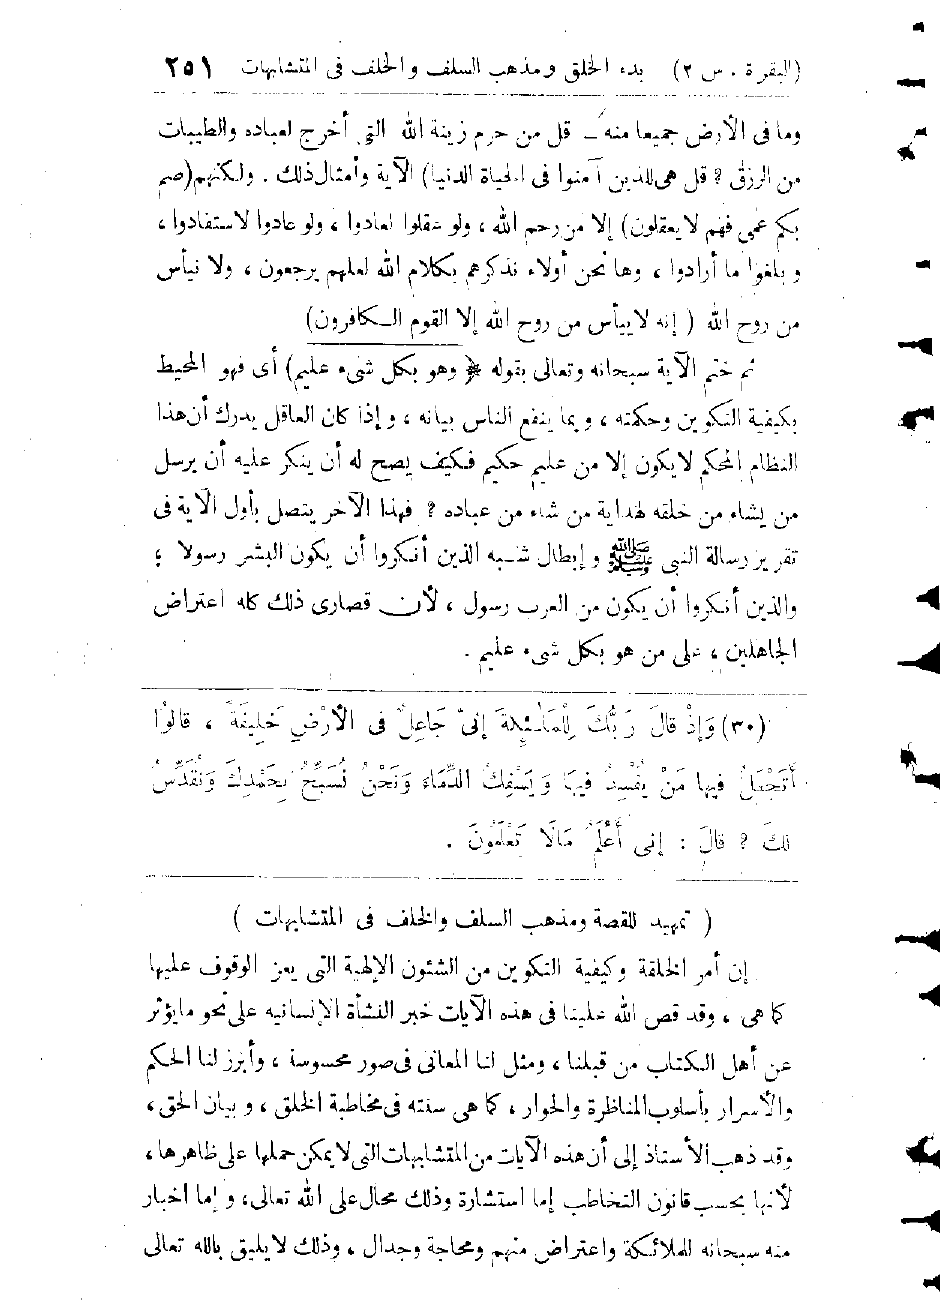 (البقرة . س ٢) بدء الخلق ومذهب السلف والخلف فى المتشابهات ٢٥١
وما فى الأرض جميعا منه ــ قل من حرم زينة الله التى أخرج لعباده والطيبات
من الرزق ? قل هى للذين آمنوا فى الحياة الدنيا) الآية وأمثال ذلك . ولكنهم (صم
بكم عمى فهم لا يعقلون) إلا من رحم الله ، ولو عقلوا لعادوا ، ولو عادوا لاستفادوا ،
وبلغوا ما أرادوا ، وها نحن أولاء نذكرهم بكلام الله لعلهم يرجعون ، ولا نيأس
من روح الله ( إنه لا ييأس من روح الله إلا القوم الكافرون)
ثم ختم الآية سبحانه وتعالى بقوله ﴿ وهو بكل شىء عليم) أى فهو المحيط
بكيفية التكوين وحكمته ، وبما ينفع الناس بيانه ، وإذا كان العاقل يدرك أن هذا
النظام المحكم لا يكون إلا من عليم حكيم فكيف يصح له أن ينكر عليه أن يرسل
من يشاء من خلقه لهداية من شاء من عباده ? فهذا الآخر يتصل بأول الآية فى
تقرير رسالة النبى ﷺ وإبطال شبه الذين أنكروا أن يكون البشر رسولا ؛
والذين أنكروا أن يكون من العرب رسول ، لأن قصارى ذلك كله اعتراض
الجاهلين ، على من هو بكل شىء عليم .
(٣٠) وَإِذْ قَالَ رَبُّكَ لِلْمَلَٰئِكَةِ إِنِّى جَاعِلٌ فِى الأَرْضِ خَلِيفَةً ، قالُوا
أَتَجْعَلُ فِيها مَنْ يُفْسِدُ فِيهَا وَيَسْفِكُ الدِّمَاءَ وَنَحْنُ نُسَبِّحُ بِحَمْدِكَ وَنُقَدِّسُ
لَكَ ? قَالَ : إِنى أَعْلَمُ مَالَا تَعْلَمُونَ .
( تمهيد للقصة ومذهب السلف والخلف فى المتشابهات )
إن أمر الخلقة وكيفية التكوين من الشئون الإلهية التى يعز الوقوف عليها
كما هى ، وقد قص الله علينا فى هذه الآيات خبر النشأة الإنسانيه على نحو ما يؤثر
عن أهل الكتاب من قبلنا ، ومثل لنا المعانى فى صور محسوسة ، وأبرز لنا الحكم
والأسرار بأسلوب المناظرة والحوار ، كما هى سنته فى مخاطبة الخلق ، وبيان الحق ،
وقد ذهب الأستاذ إلى أن هذه الآيات من المتشابهات التى لا يمكن حملها على ظاهرها ،
لأنها بحسب قانون التخاطب إما استشارة وذلك محال على الله تعالى ، وإما اخبار
منه سبحانه للملائكة واعتراض منهم ومحاجة وجدال ، وذلك لا يليق بالله تعالى